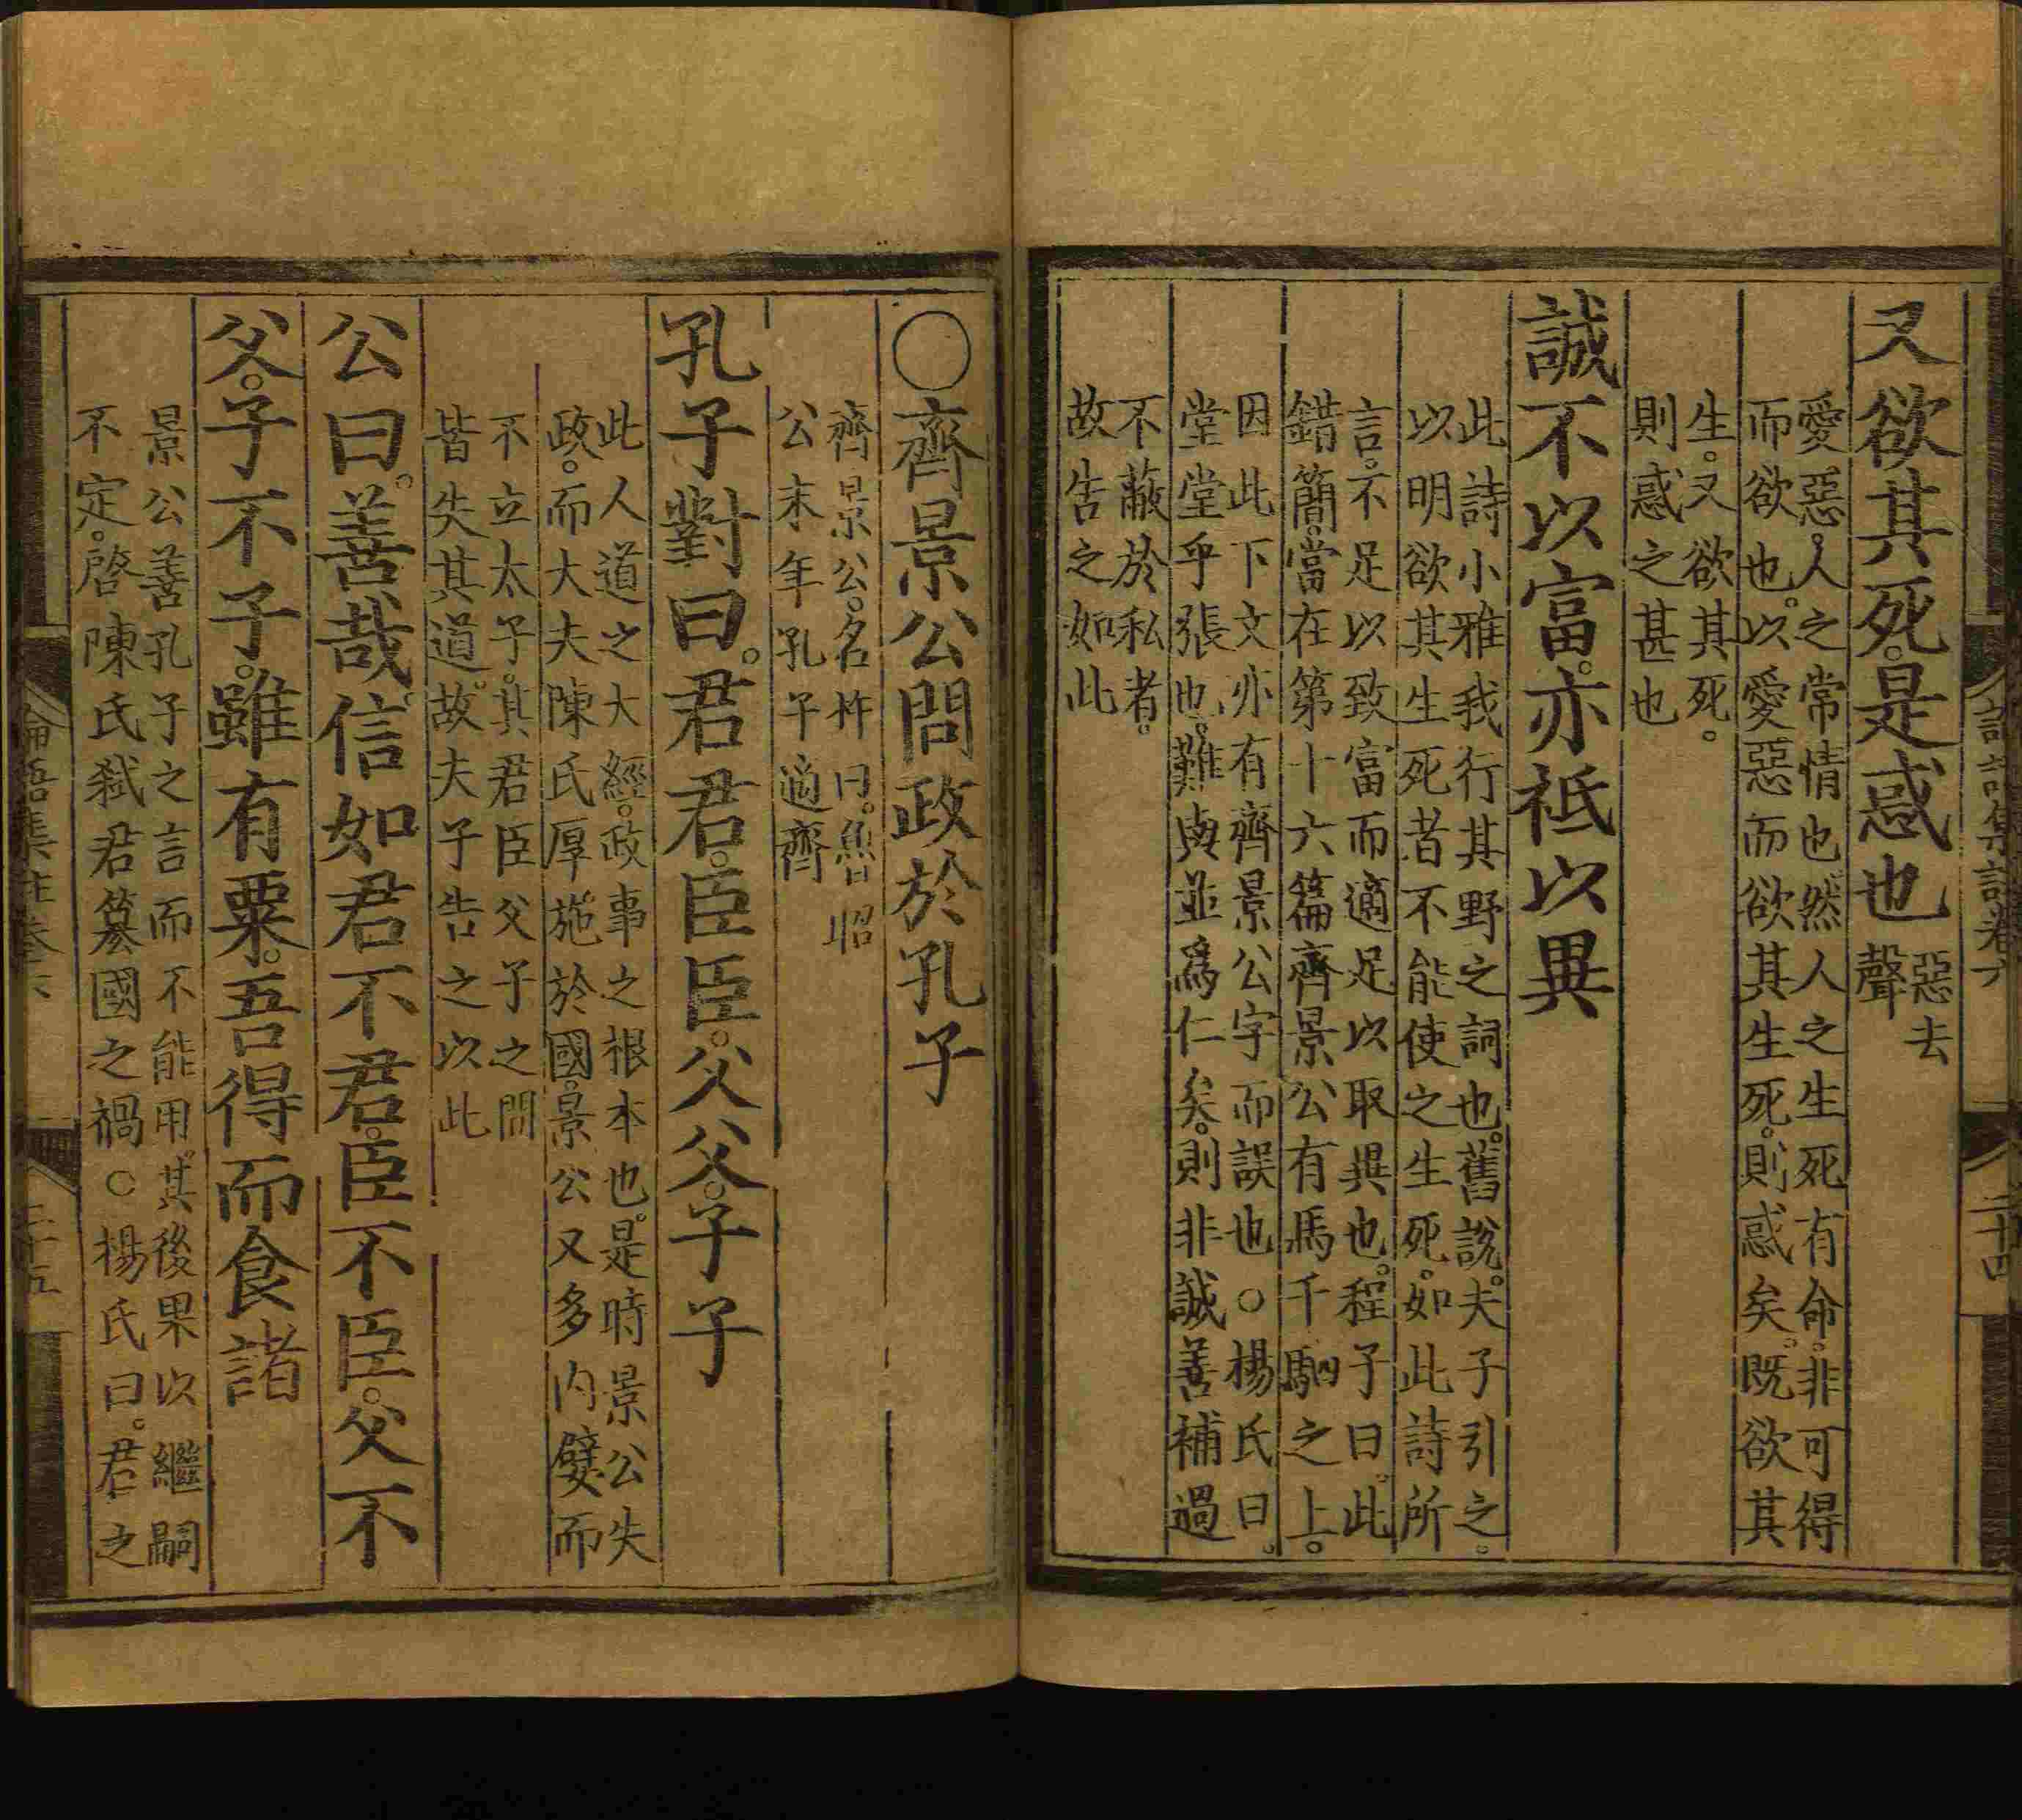 又欲其死。是惑也惡去聲
愛惡。人之常情也。然人之生死有命。非可得
而欲也。以愛惡而欲其生死。則惑矣。既欲其
生。又欲其死。
則惑之甚也
誠不以富。亦祗以異
此詩小雅我行其野之詞也。舊說。夫子引之。
以明欲其生死者不能使之生死。如此詩所
言。不足以致富而適足以取異也。程子曰。此
錯簡。當在第十六篇齊景公有馬千駟之上。
因此下文亦有齊景公字而誤也○楊氏曰。
堂堂乎張也。難與並爲仁矣。則非誠善補過
不蔽於私者。
故告之如此
二十四
○齊景公問政於孔子
齊景公。名杵臼。魯昭
公末年孔子適齊
孔子對曰。君君。臣臣。父父。子子
此人道之大經。政事之根本也。是時景公失
政。而大夫陳氏厚施於國。景公又多內嬖而
不立太子。其君臣父子之間
皆失其道。故夫子告之以此
公曰。善哉。信如君不君。臣不臣。父不
父。子不子。雖有粟。吾得而食諸
景公善孔子之言而不能用。其後果以繼嗣
不定。啓陳氏弒君簒國之禍○楊氏曰。君之
論語集註卷六
二十五